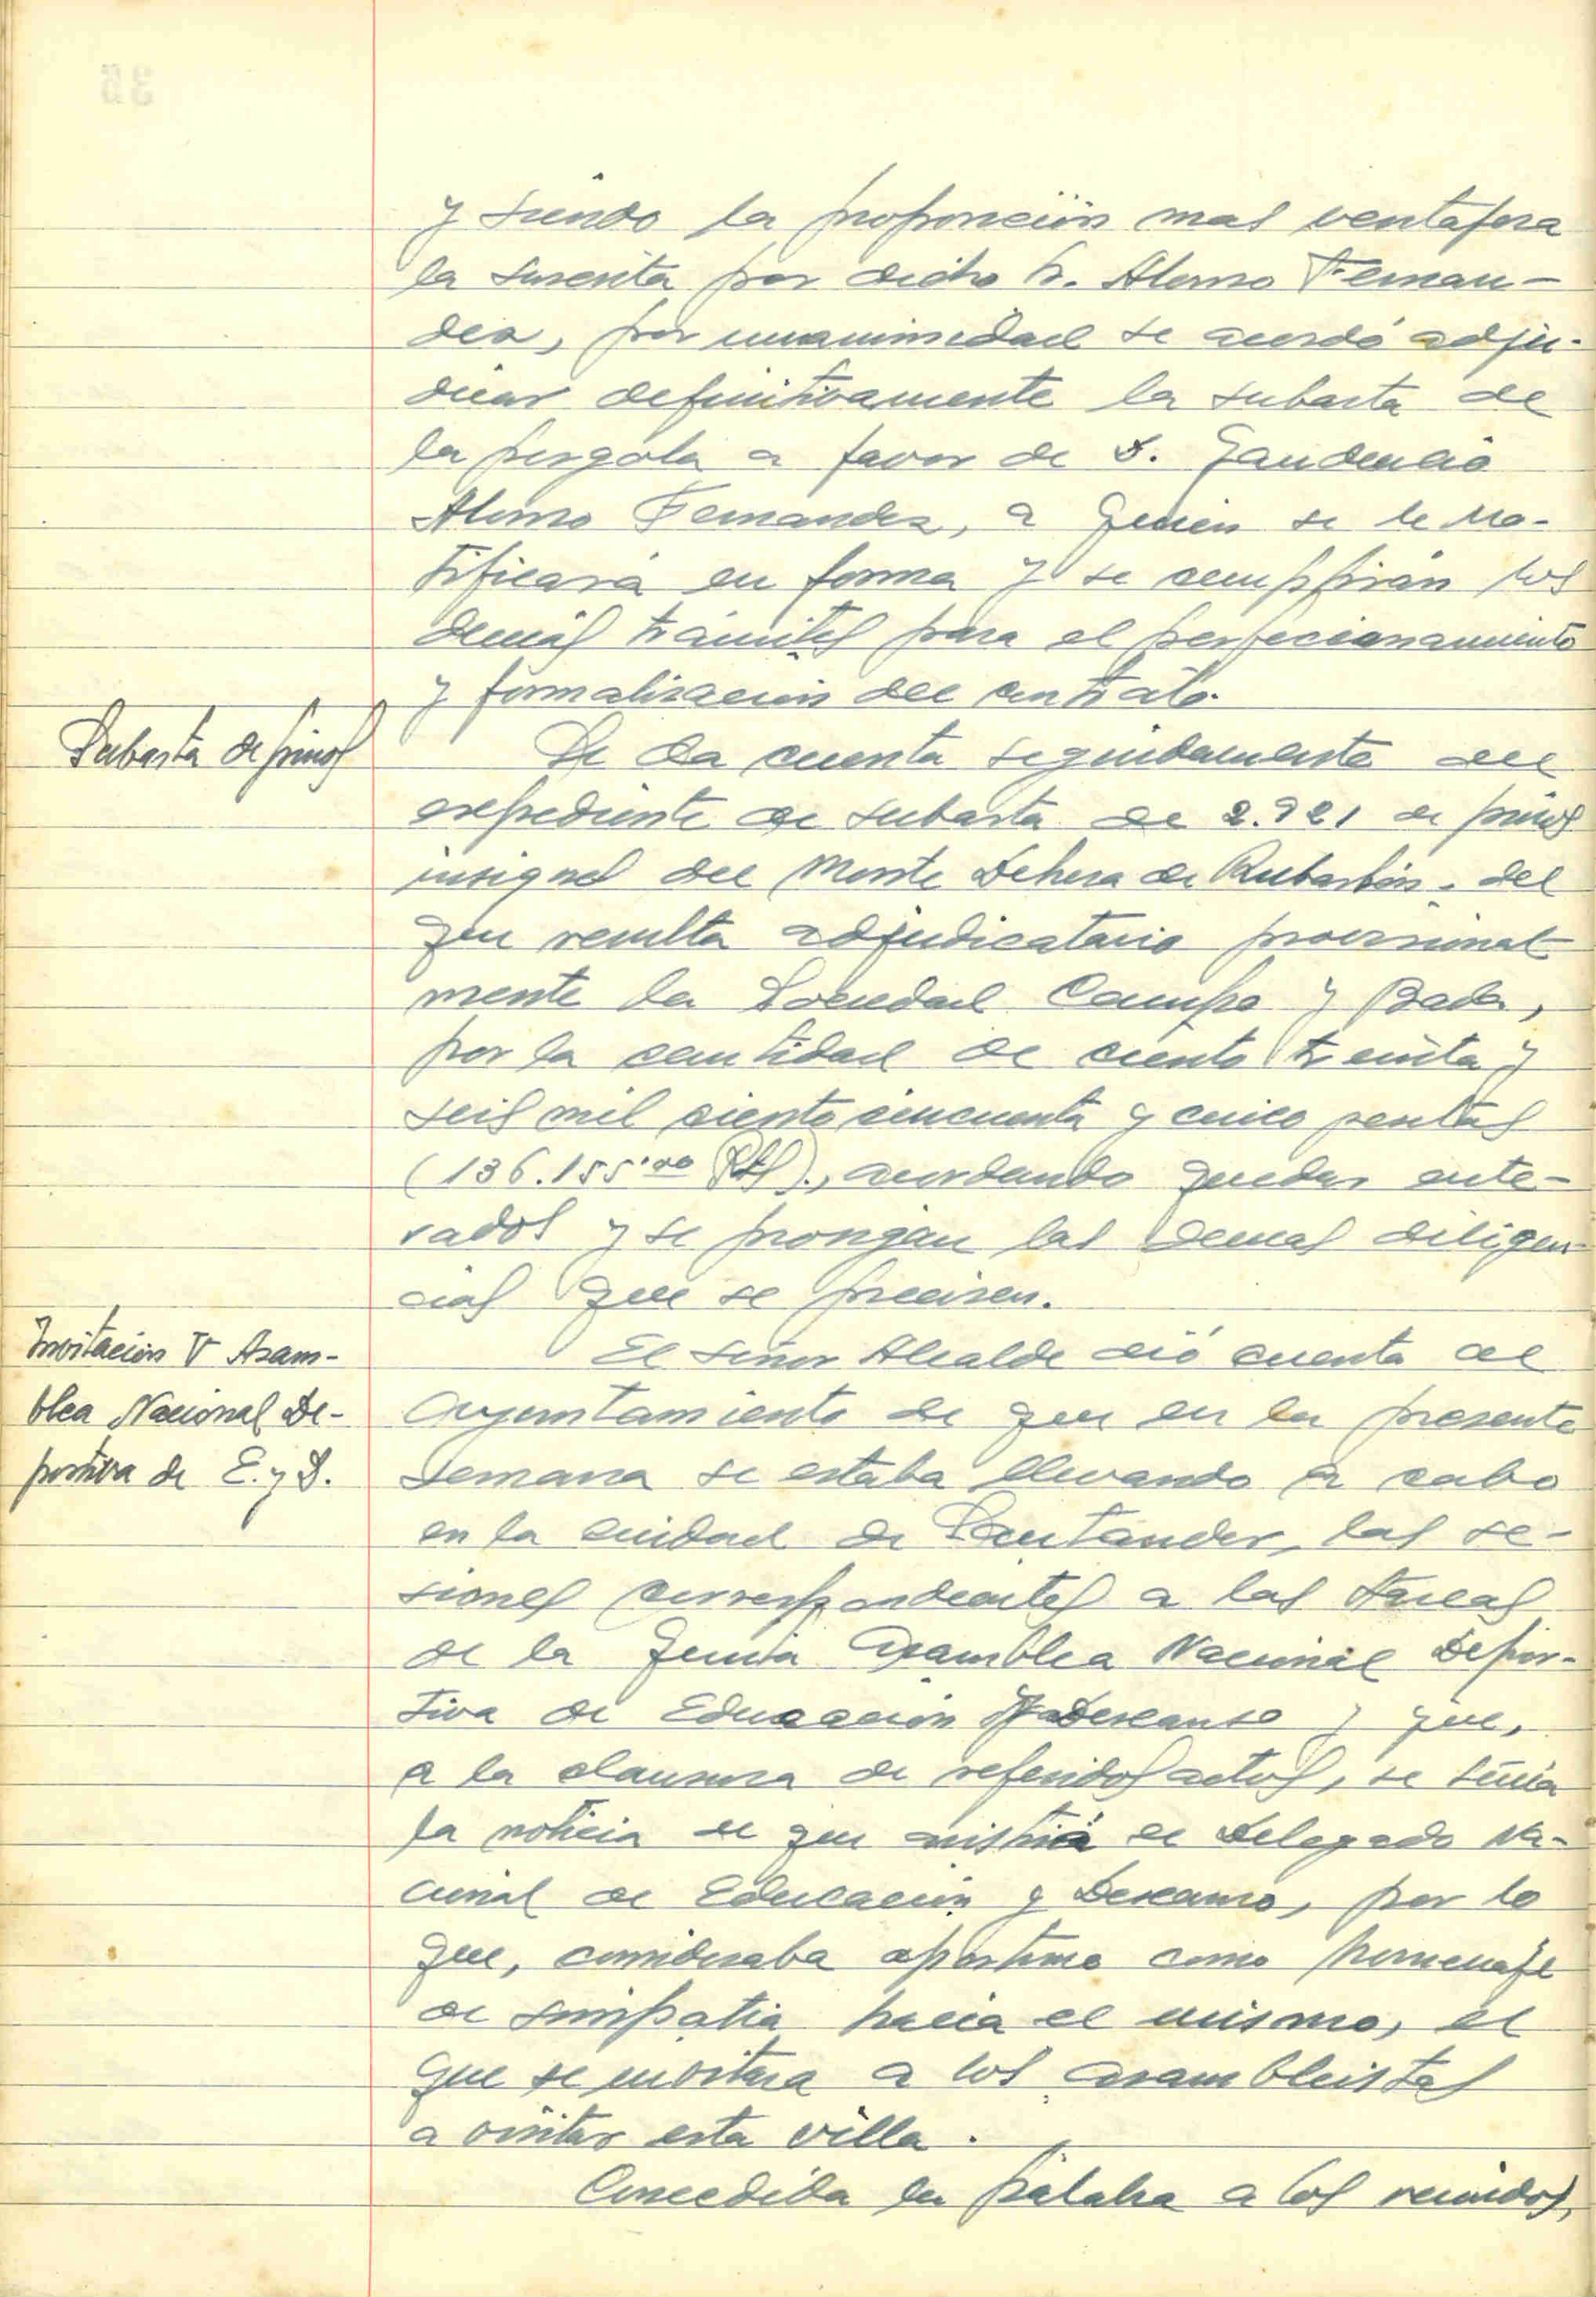 y siendo la proposición mas ventajosa
la suscrita por dicho Sr. Alonso Fernan-
dez, por unanimidad se acordó adju-
dicar definitivamente la subasta de
la pergola a favor de D. Gaudencio
Alonso Fernandez, a quien se le no-
tificará en forma y se cumplirán los
demás trámites para el perfecionamiento
y formalización del contrato.
Subasta de pinos
Se da cuenta seguidamente del
expediente de subasta de 2.921 de pinos
insignes del Monte Dehesa de, del
que resulta adjudicatario provisional-
mente la Sociedad Campo y Bada,
por la cantidad de ciento treinta y
seis mil ciento cincuenta y cinco pesetas
(136.155'00 Pts)., acordando quedar ente-
rados y se prosigan las demas diligen-
cias que se precisen.
Invitación V Asam-
blea Nacional De-
portiva de E. y D.
El señor Alcalde dió cuenta al
Ayuntamiento de que en la presente
semana se estaba llevando a cabo
en la ciudad de Santander, las se-
siones correspondientes a las tareas
de la Quinta Asamblea Nacional Depor-
tiva de Educación y Descanso y que,
a la clausura de referidos actos, se tenía
la noticia de que asistirá el Delegado Na-
cional de Educación y Descanso, por lo
que, consideraba oportuno como homenaje
de simpatia hacia el mismo, el
que se invitara a los asambleistas
a visitar esta villa.
Concedida la palabra a los reunidos,